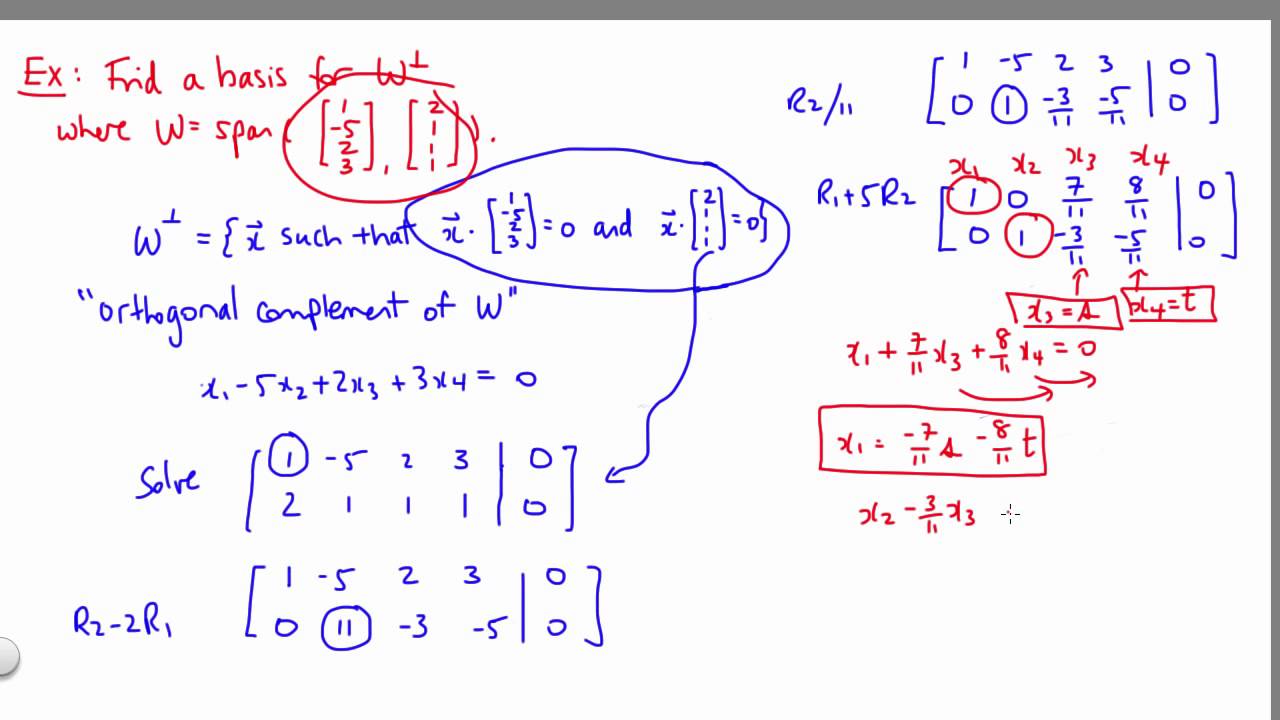 Ex: Find a basis for W⊥
where W = span( [1 -5 2 3], [2 1 1 1] ).
W⊥ = { x⃗ such that x⃗ · [1 -5 2 3] = 0 and x⃗ · [2 1 1 1] = 0}
"orthogonal complement of W"
x₁ - 5x₂ + 2x₃ + 3x₄ = 0
Solve
[ 1 -5 2 3 | 0 ]
[ 2 1 1 1 | 0 ]
R2-2R1
[ 1 -5 2 3 | 0 ]
[ 0 11 -3 -5 | 0 ]
R2/11
[ 1 -5 2 3 | 0 ]
[ 0 1 -3/11 -5/11 | 0 ]
x₁ x₂ x₃ x₄
R1+5R2
[ 1 0 7/11 8/11 | 0 ]
[ 0 1 -3/11 -5/11 | 0 ]
x₃ = s x₄ = t
x₁ + 7/11 x₃ + 8/11 x₄ = 0
x₁ = -7/11 s - 8/11 t
x₂ - 3/11 x₃